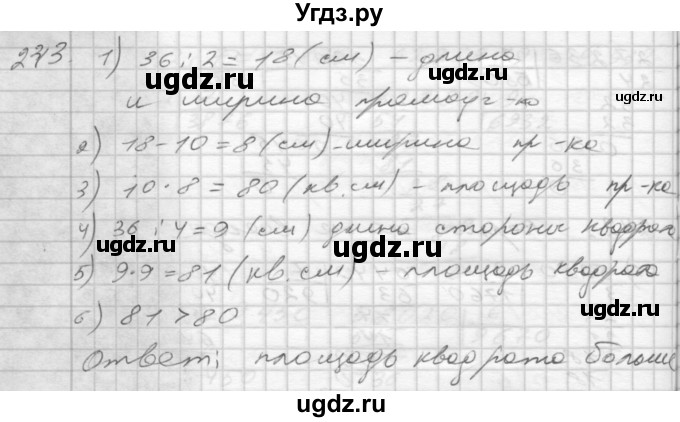 Угдз.ру
243. 1) 36 : 2 = 18 (см) – длина
и ширина прямоуг-ка
2) 18 - 10 = 8 (см) – ширина пр-ка
3) 10 · 8 = 80 (кв.см) – площадь пр-ка
4) 36 : 4 = 9 (см) длина стороны квадрата
5) 9 · 9 = 81 (кв.см) – площадь квадрата
6) 81 > 80
Ответ: площадь квадрата больше
ugdz.ru
ugdz.ru
ugdz.ru
ugdz.ru
ugdz.ru
ugdz.ru
ugdz.ru
ugdz.ru
ugdz.ru